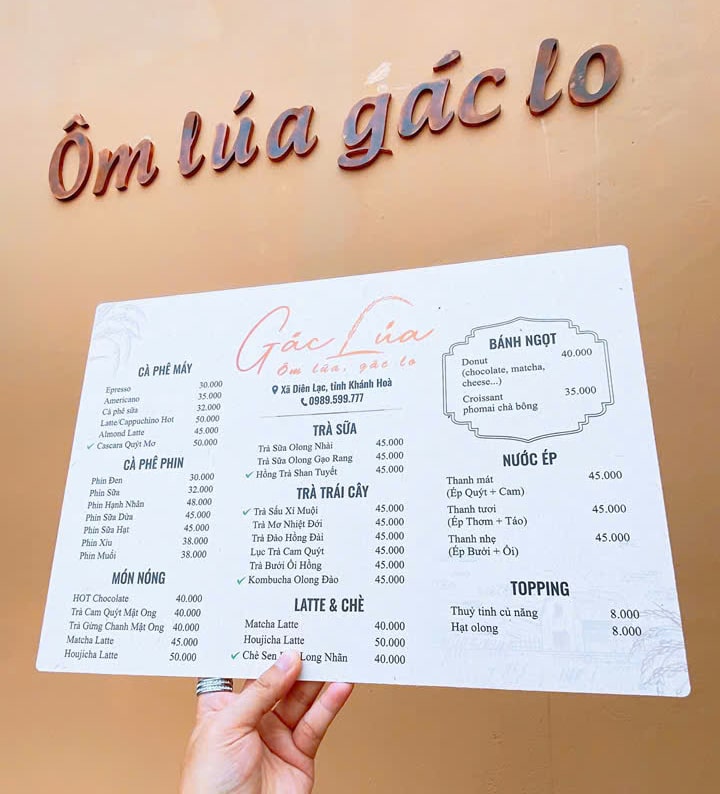 Ôm lúa gác lo
Gác Lúa
Ôm lúa, gác lo
Xã Diên Lạc, tỉnh Khánh Hoà
0989.599.777
CÀ PHÊ MÁY
Epresso 30.000
Americano 35.000
Cà phê sữa 32.000
Latte/Cappuchino Hot 50.000
Almond Latte 45.000
✓ Cascara Quýt Mơ 50.000
CÀ PHÊ PHIN
Phin Đen 30.000
Phin Sữa 32.000
Phin Hạnh Nhân 48.000
Phin Sữa Dừa 45.000
Phin Sữa Hạt 45.000
Phin Xỉu 38.000
Phin Muối 38.000
MÓN NÓNG
HOT Chocolate 40.000
Trà Cam Quýt Mật Ong 40.000
Trà Gừng Chanh Mật Ong 40.000
Matcha Latte 45.000
Houjicha Latte 50.000
TRÀ SỮA
Trà Sữa Olong Nhài 45.000
Trà Sữa Olong Gạo Rang 45.000
✓ Hồng Trà Shan Tuyết 45.000
TRÀ TRÁI CÂY
✓ Trà Sấu Xí Muội 45.000
Trà Mơ Nhiệt Đới 45.000
Trà Đào Hồng Đài 45.000
Lục Trà Cam Quýt 45.000
Trà Bưởi Ổi Hồng 45.000
✓ Kombucha Olong Đào 45.000
LATTE & CHÈ
Matcha Latte 40.000
Houjicha Latte 50.000
✓ Chè Sen Long Nhãn 40.000
BÁNH NGỌT
Donut 40.000
(chocolate, matcha,
cheese...)
Croissant 35.000
phomai chà bông
NƯỚC ÉP
Thanh mát 45.000
(Ép Quýt + Cam)
Thanh tươi 45.000
(Ép Thơm + Táo)
Thanh nhẹ 45.000
(Ép Bưởi + Ổi)
TOPPING
Thuỷ tinh củ năng 8.000
Hạt olong 8.000